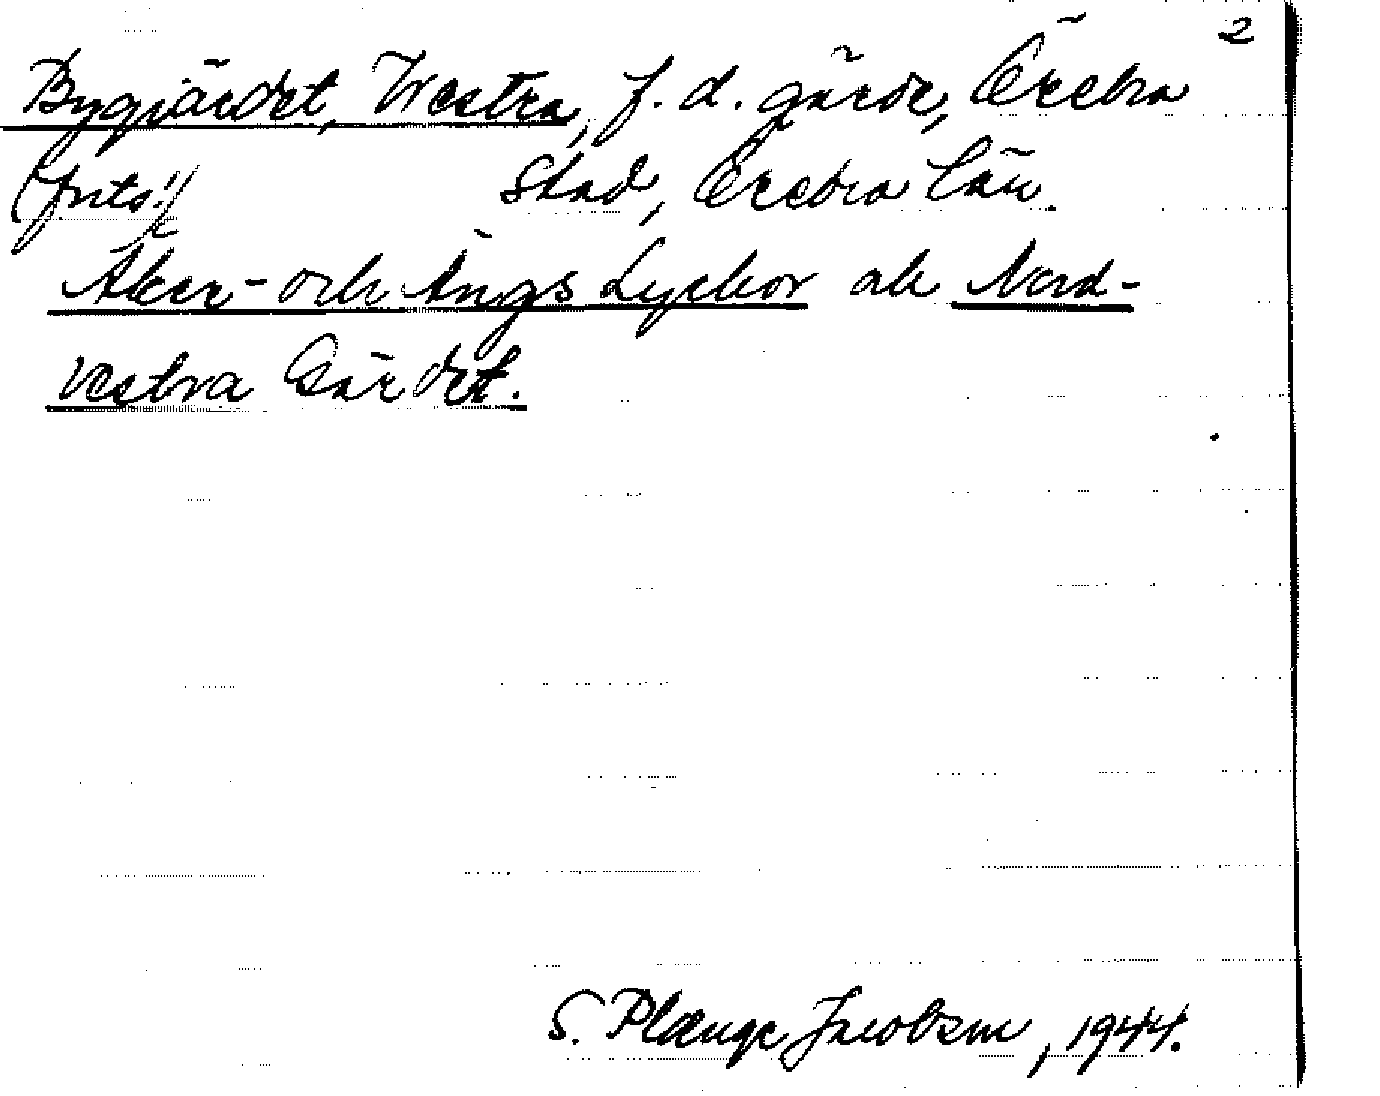 2
Bygärdet, Westra, f. d. gärde, Örebro
(forts.) Stad, Örebro län.
Åker- och Ängs Lyckor ak Nord-
vestra Gärdet.
S. Plænge Jacobson, 1944.